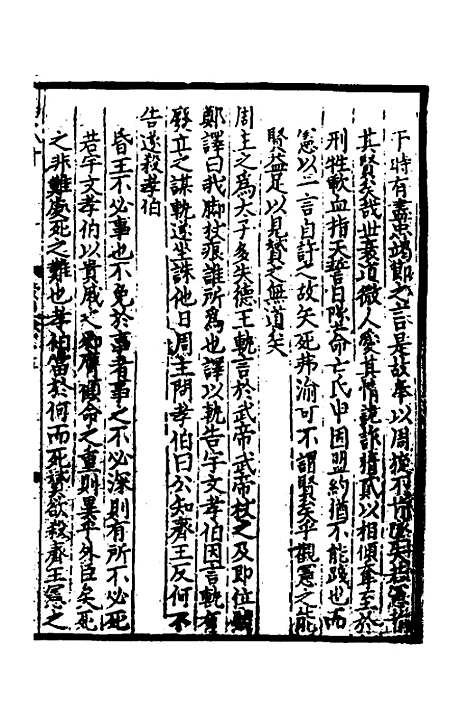 下時有盡忠竭節之言是故奉以周旋不
其賢矣哉世衰道微人愛其情譎詐猜貳以相傾奪至於
刑牲歃血指天誓日隊命亡氏申固盟約猶不能踐也而
憲以一言自許之故矢死弗渝可不謂賢矣乎觀憲之能
賢益足以見贇之無道矣
周主之爲太子多失德王軌言於武帝武帝杖之及即位
鄭譯曰我脚杖痕誰所爲也譯以軌告宇文孝伯因言軌
廢立之謀軌遂坐誅他日周主問孝伯曰公知齊王反何不
告遂殺孝伯
昏王不必事也不免於事者事之不必深則有所不必死
若宇文孝伯以貴戚之 膺顧命之重則異乎外臣矣死
之非難處死之難也孝伯當於何而死贇欲殺齊王憲之